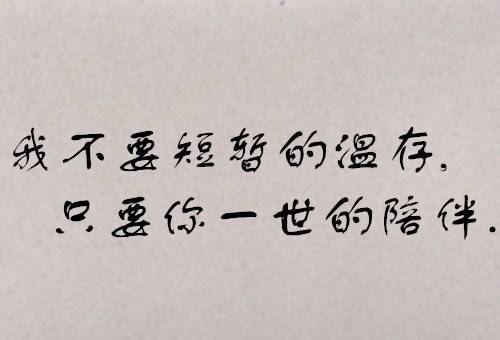 我不要短暂的温存,
只要你一世的陪伴.